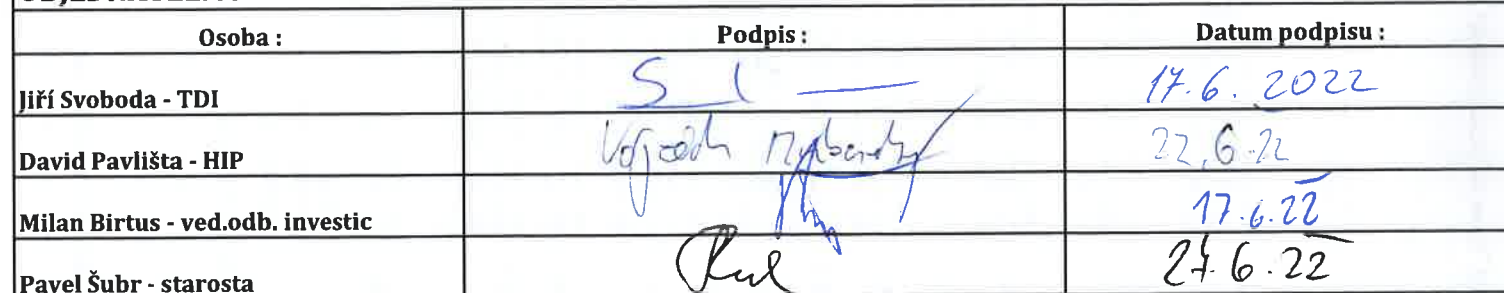 Osoba : Podpis : Datum podpisu :
Jiří Svoboda - TDI 17.6. 2022
David Pavlišta - HIP Vojtěch 22.6.22
Milan Birtus - ved.odb. investic 17.6.22
Pavel Šubr - starosta 27.6.22